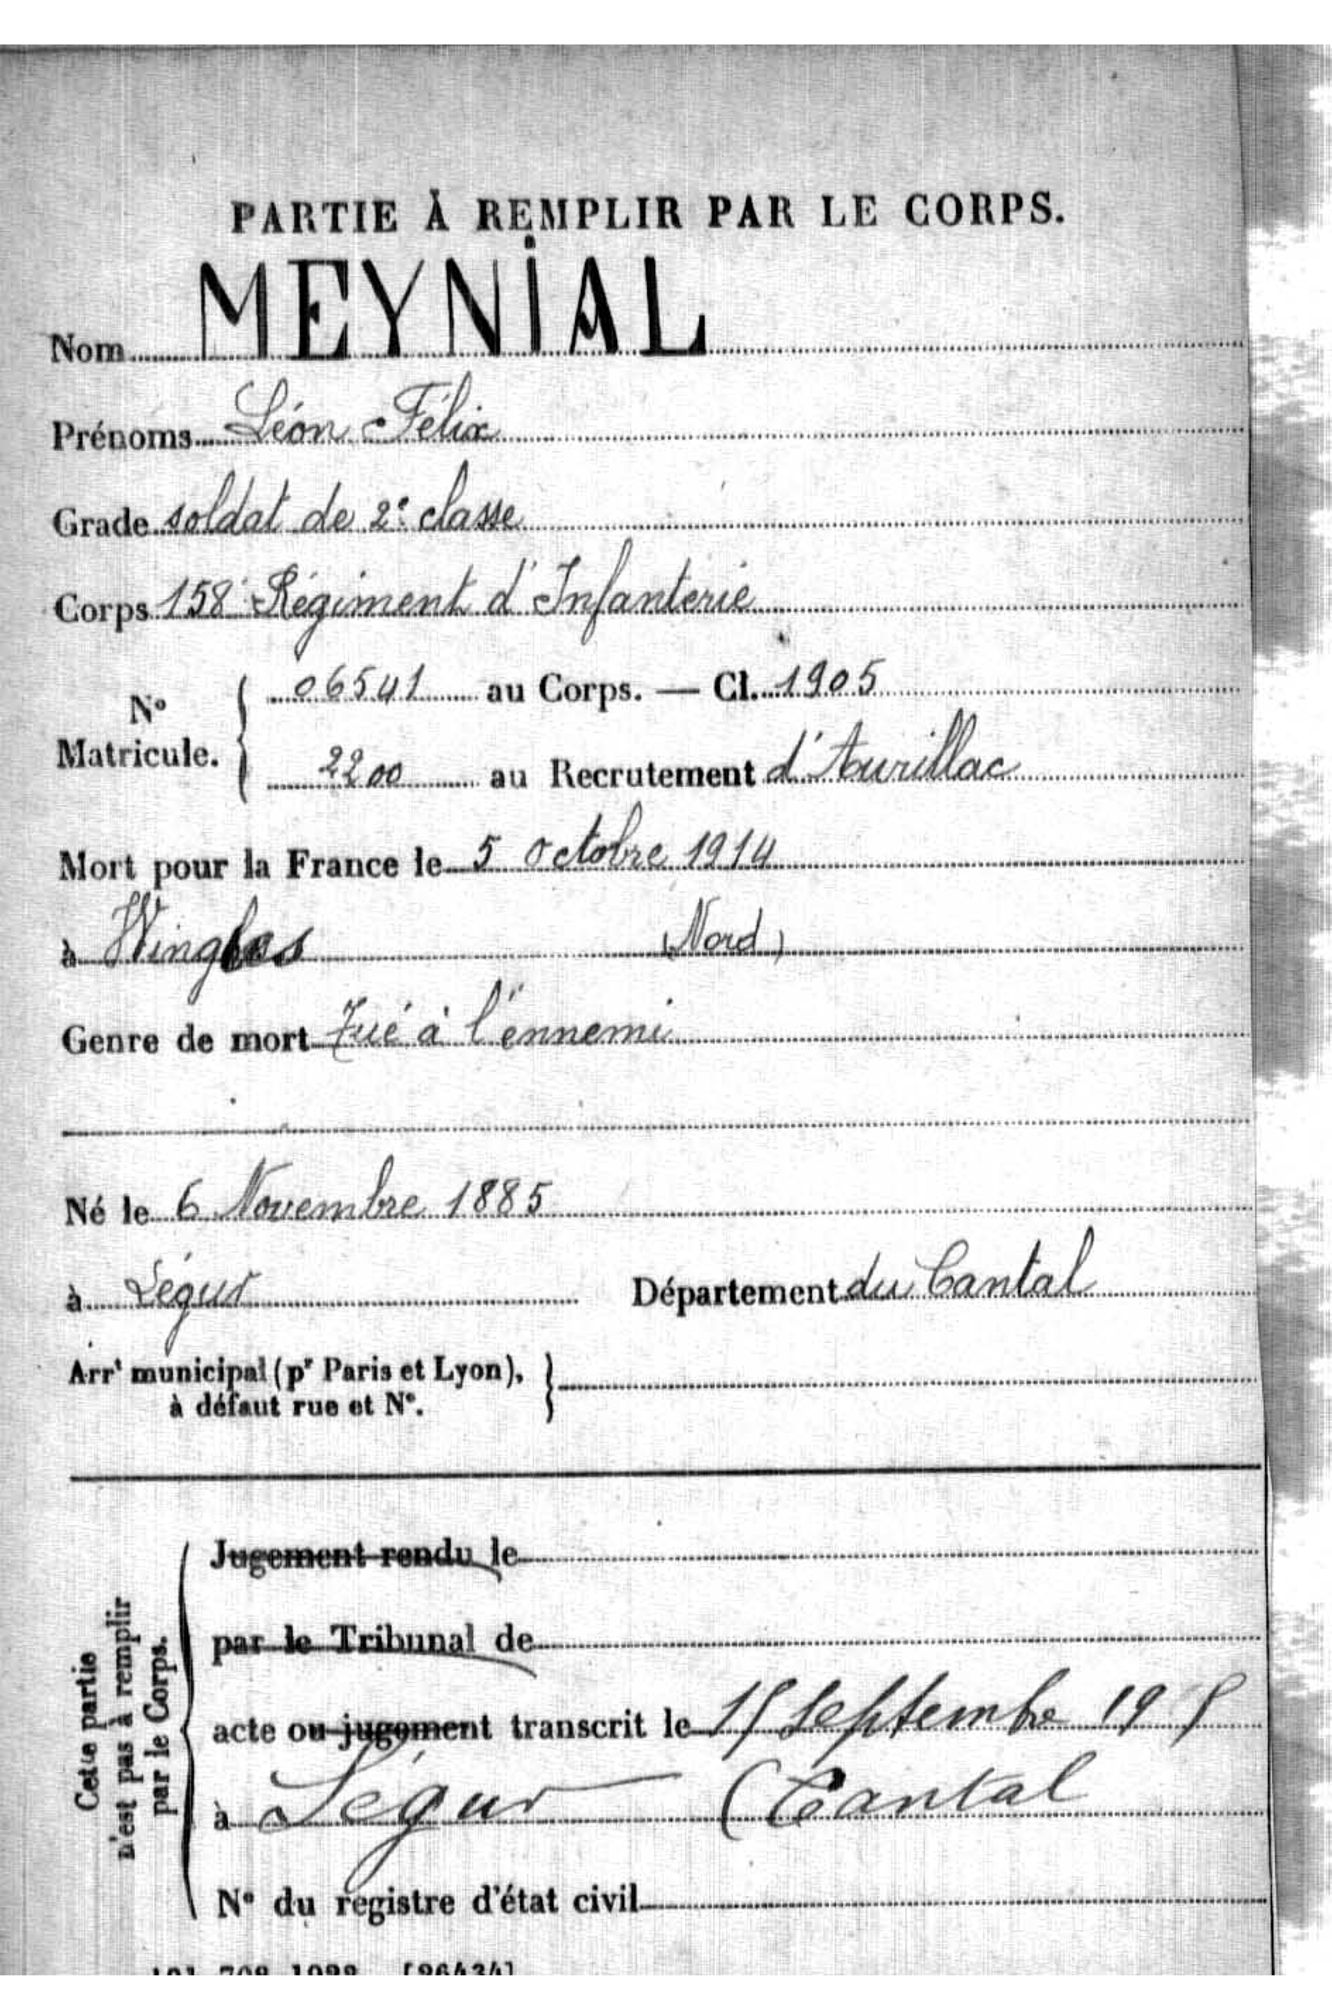 PARTIE À REMPLIR PAR LE CORPS.
Nom MEYNIAL
Prénoms Léon Félix
Grade soldat de 2e classe
Corps 158e Régiment d'Infanterie
N° Matricule. { 06541 au Corps. — Cl. 1905
2200 au Recrutement d'Aurillac
Mort pour la France le 5 octobre 1914
à Wingles (Nord)
Genre de mort Tué à l'ennemi
Né le 6 Novembre 1885
à Ségur Département du Cantal
Arrt municipal (pr Paris et Lyon), }
à défaut rue et N°.
Cette partie
n'est pas à remplir
par le Corps.
Jugement rendu le
par le Tribunal de
acte ou jugement transcrit le 15 Septembre 19
à Ségur (Cantal
N° du registre d'état civil
708 1922 [26434]